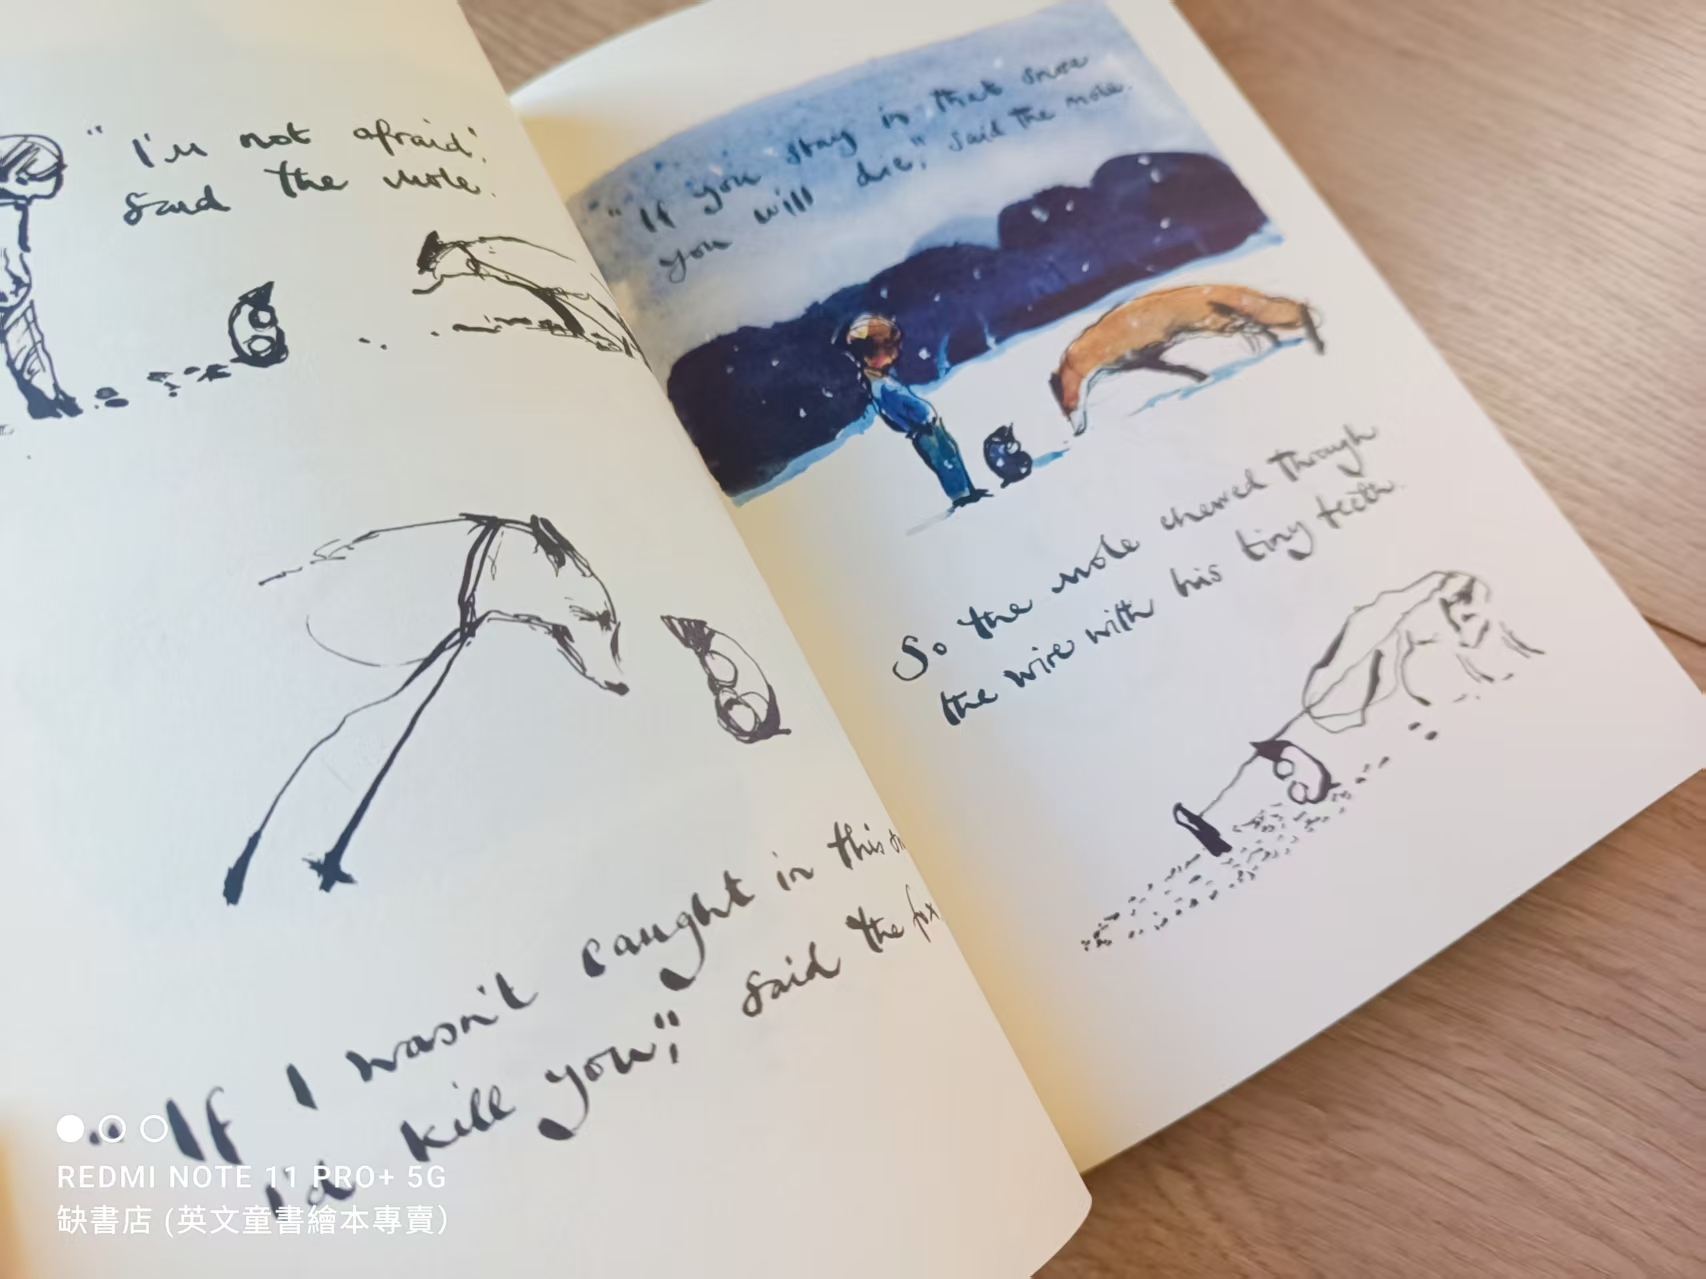 "I'm not afraid",
said the mole.
"If I wasn't caught in this
I'd kill you," said the fox
"If you stay in that snare
you will die," said the mole.
So the mole chewed through
the wire with his tiny teeth.
REDMI NOTE 11 PRO+ 5G
缺書店 (英文童書繪本專賣)